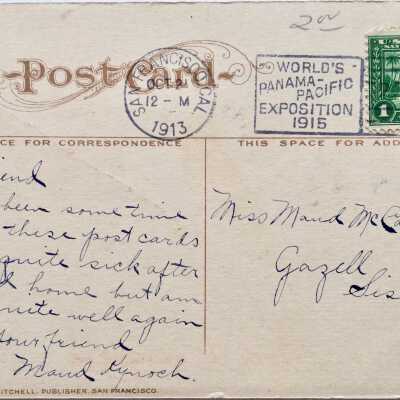 2.00
Post Card
SAN FRANCISCO, CAL.
OCT 2
12-M
1913
WORLD'S
PANAMA-
PACIFIC
EXPOSITION
1915
1
CE FOR CORRESPONDENCE
THIS SPACE FOR ADD
end
been some time
these post cards
quite sick after
home but am
quite well again
your friend
Maud Kynoch.
Miss Maud McCa
Gazell
Sis
ITCHELL, PUBLISHER, SAN FRANCISCO.